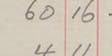 60 16
4 11